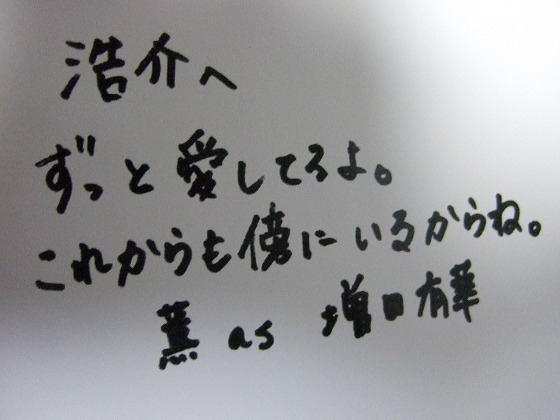 浩介へ
ずっと愛してるよ。
これからも傍にいるからね。
薫 as 増田有華